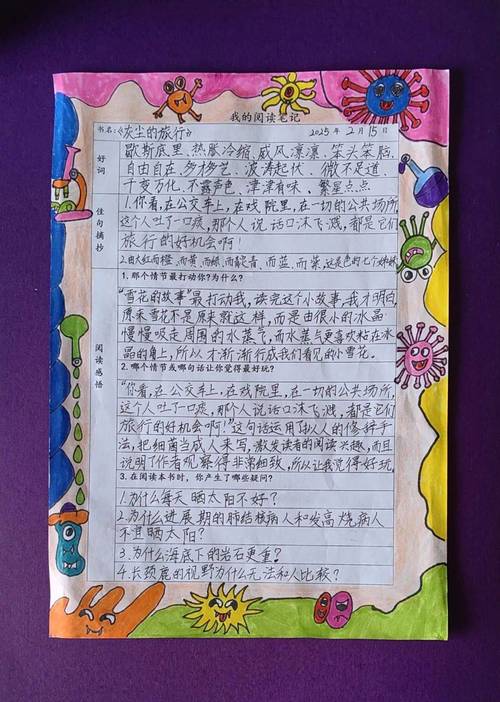 我的阅读笔记
书名:《灰尘的旅行》
2025年2月15日
好词
歇斯底里、热胀冷缩、威风凛凛、笨头笨脑、
自由自在、多才多艺、波涛起伏、微不足道、
千变万化、不露声色、津津有味、繁星点点
佳句摘抄
1.你看,在公交车上,在戏院里,在一切的公共场所,
这个人吐了一口痰,那个人说话口沫飞溅,都是它们
旅行的好机会啊!
2.由火红而橙、而黄、而绿、而靛青、而蓝、而紫,这炎色的七个
阅读感悟
1.那个情节最打动你?为什么?
“雪花的故事”最打动我,读完这个小故事,我才明白,
原来雪花不是原来就这样,而是由很小的水晶
慢慢吸走周围的水蒸气,而水蒸气更喜欢粘在水
晶的角上,所以才渐渐行成我们看见的小雪花。
2.哪个情节或哪句话让你觉得最好玩?
“你看,在公交车上,在戏院里,在一切的公共场所,
这个人吐了一口痰,那个人说话口沫飞溅,都是它们
旅行的好机会啊!”这句话运用了拟人的修辞手
法,把细菌当成人来写,激发读者的阅读兴趣,而且
说明了作者观察得非常细致,所以让我觉得好玩。
3.在阅读本书时,你产生了哪些疑问?
1.为什么每天晒太阳不好?
2.为什么进展期的肺结核病人和发高烧病人
不宜晒太阳?
3.为什么海底下的岩石更重?
4.长颈鹿的视野为什么无法和人比较?